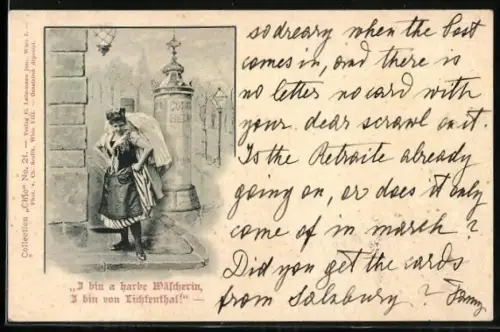 so dreary when the Post
comes in, and there is
no letter no card with
your dear scrawl on it.
Is the Retraite already
going on, or does it only
come of in march?
Did you get the cards
from Salzburg? Fanny
„I bin a harbe Wäscherin,
I bin von Lichtenthal!" —
Collection „Clio" No. 21. — Verlag C. Ledermann jun., Wien I. —
Phot. v. Ch. Scolik, Wien VIII. — Gesetzlich deponirt.